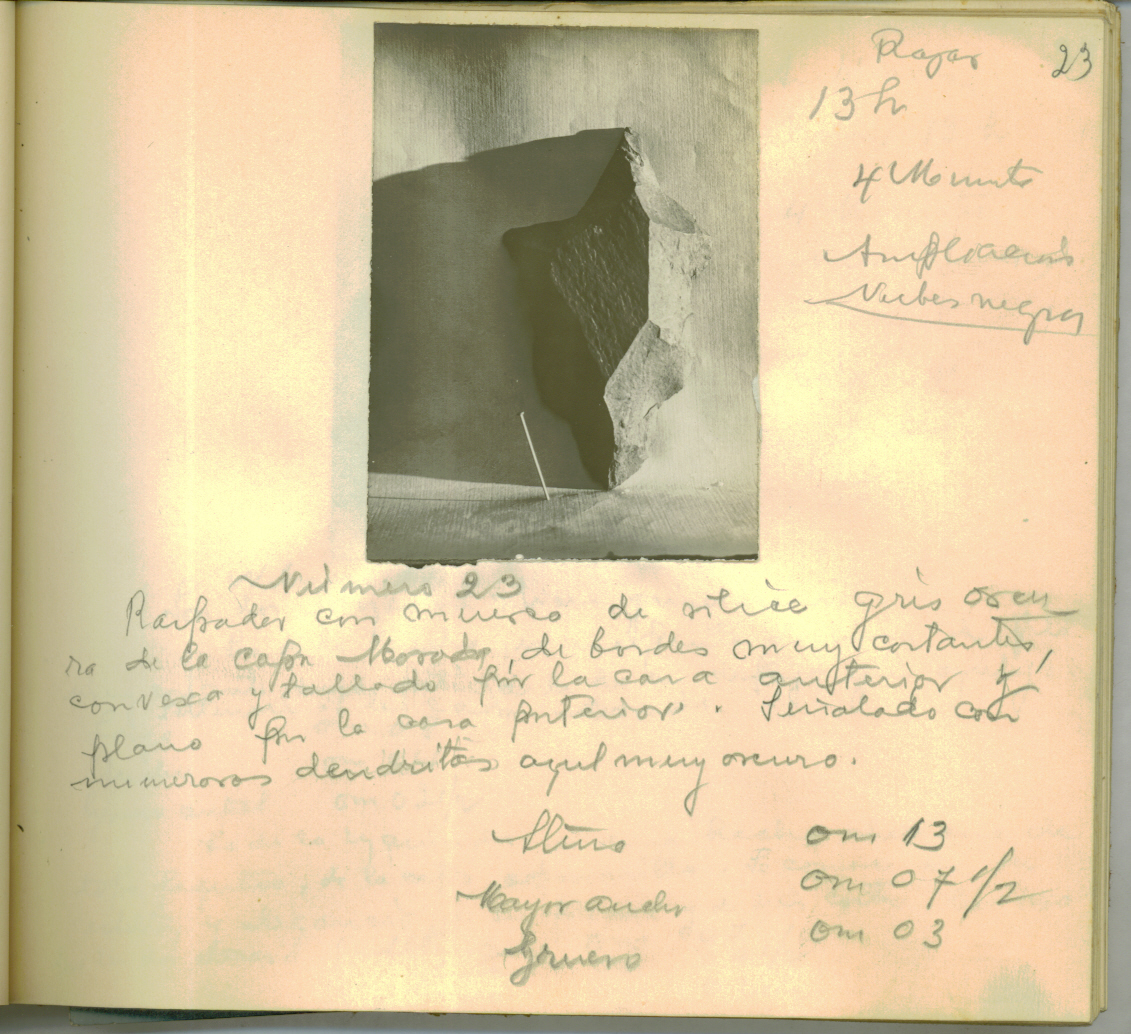 23
13 h
4 Minuts
Ampliacion
Nubes negras
Número 23
Raspador con muesca de silice gris oscu
ra de la capa Morada, de bordes muy cortantes,
convexa y tallado por la cara anterior y
plano por la cara posterior. Señalado con
numerosas dendritas azul muy oscuro.
Altura 0m 13
Mayor ancho 0m 07 1/2
Grueso 0m 03